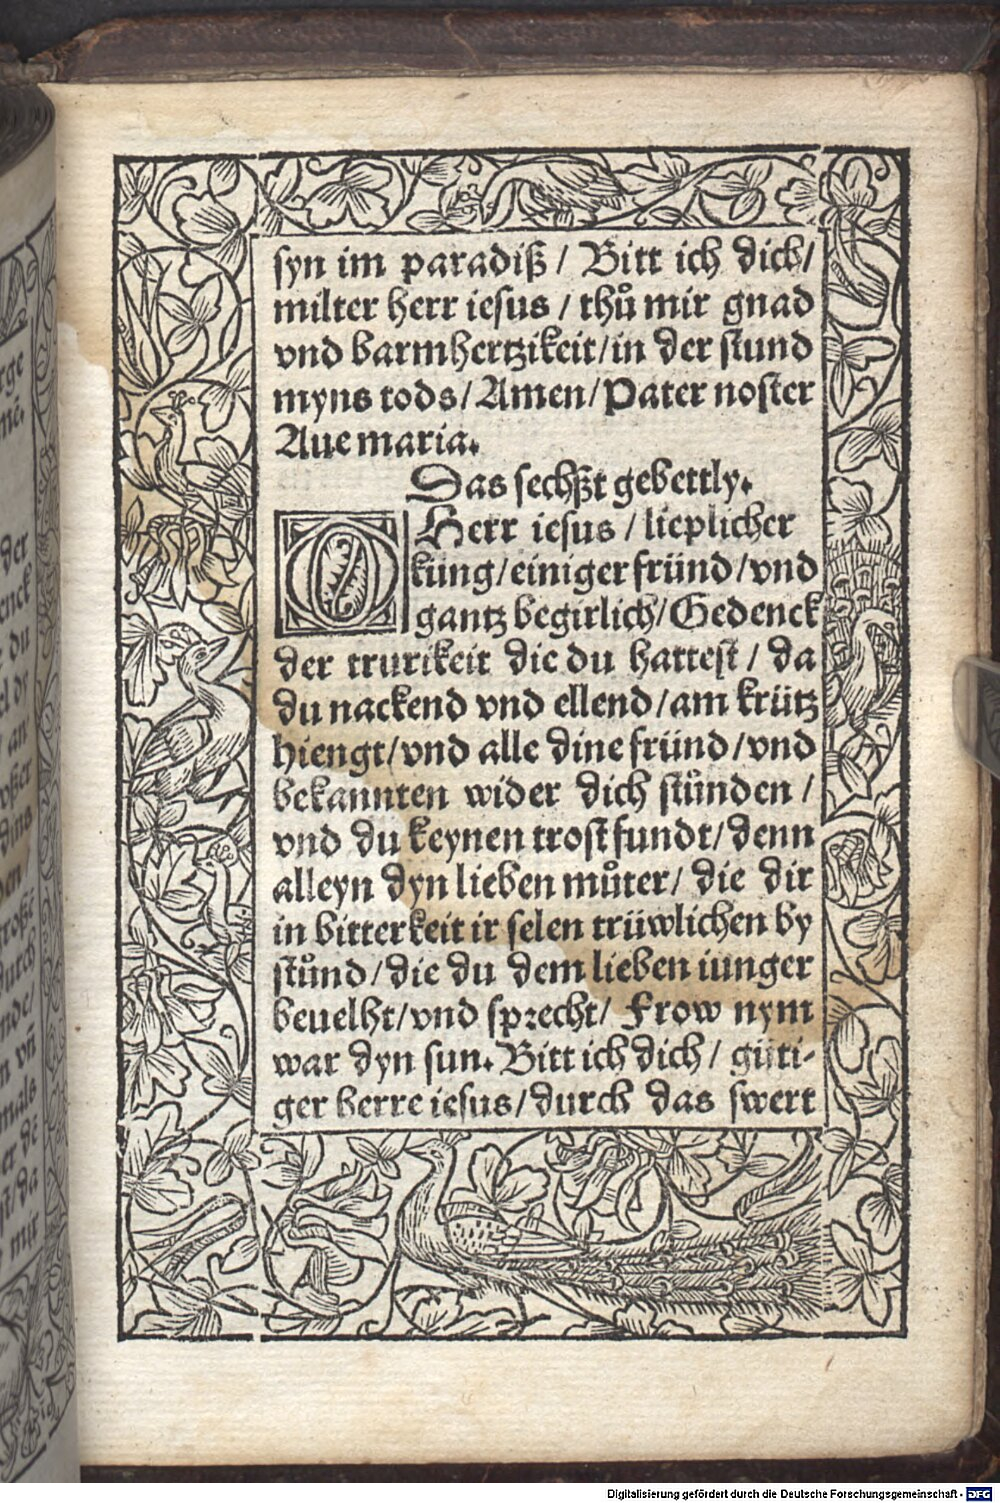 syn im paradiß / Bitt ich dich /
milter herr iesus / thuͦ mir gnad
vnd barmhertzikeit / in der stund
myns tods / Amen / Pater noster
Aue maria.
Das sechßt gebettly.
O Herr iesus / lieplicher
küng / einiger fründ / vnd
gantz begirlich / Gedenck
der trurikeit die du hattest / da
du nackend vnd ellend / am krütz
hiengt / vnd alle dine fründ / vnd
bekannten wider dich stůnden /
vnd du keynen trost fundt / denn
alleyn dyn lieben muͦter / die dir
in bitterkeit ir selen trüwlichen by
stuͦnd / die du dem lieben iunger
beuelht / vnd sprecht / Frow nym
war dyn sun. Bitt ich dich / güti-
ger herre iesus / durch das swert
rge
der
enck
du
an
dins
durch
mals
mir
Digitalisierung gefördert durch die Deutsche Forschungsgemeinschaft - DFG